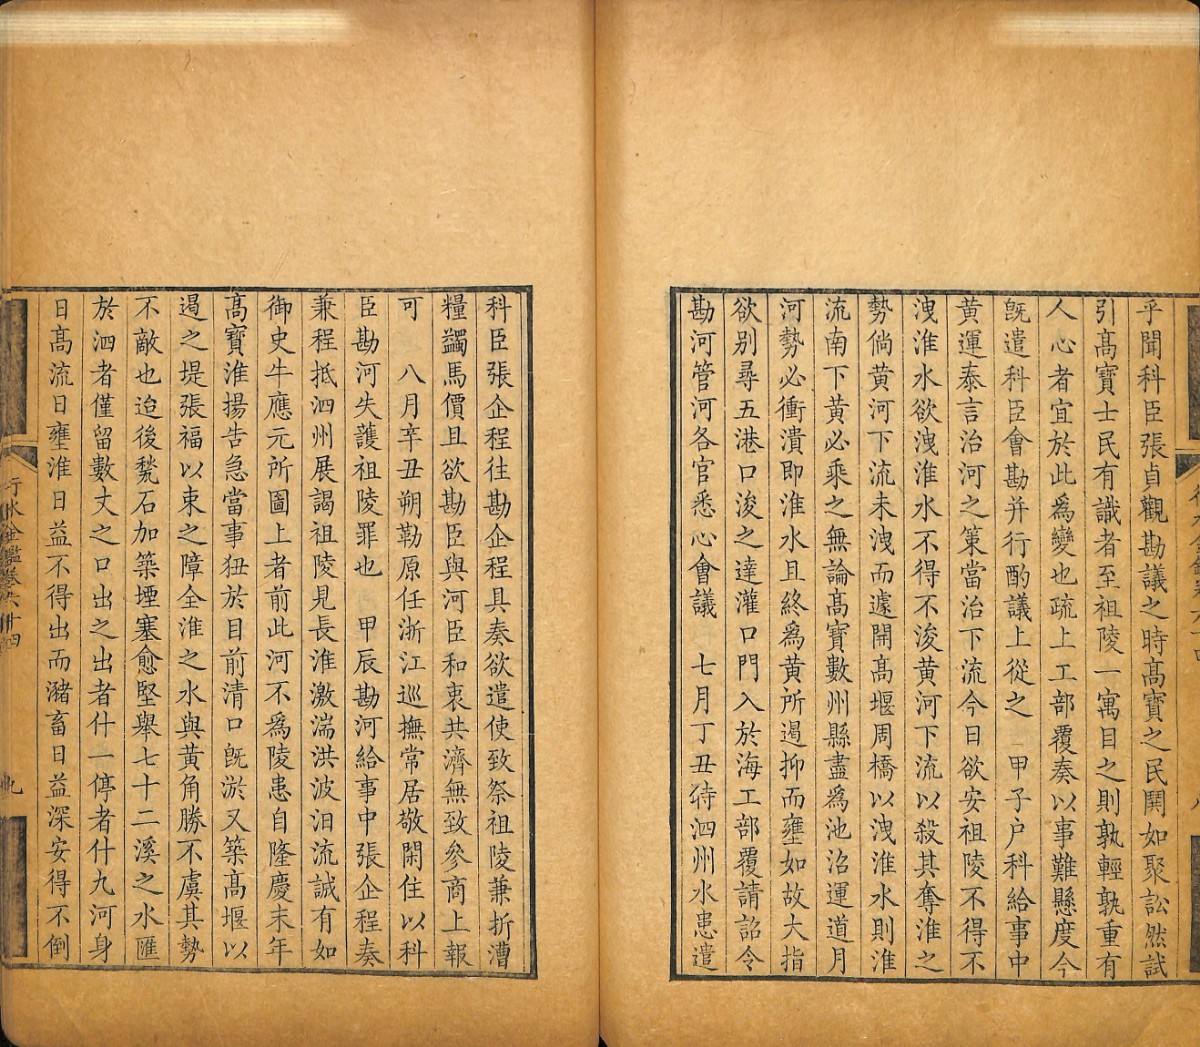 乎聞科臣張貞觀勘議之時髙寶之民鬨如聚訟然試
引髙寶士民有識者至祖陵一寓目之則孰輕孰重有
人心者宜於此爲變也疏上工部覆奏以事難懸度今
旣遣科臣會勘并行酌議上從之　甲子户科給事中
黄運泰言治河之策當治下流今日欲安祖陵不得不
洩淮水欲洩淮水不得不浚黄河下流以殺其奪淮之
勢倘黄河下流未洩而遽開髙堰周橋以洩淮水則淮
流南下黄必乘之無論髙寶數州縣盡爲池沼運道月
河勢必衝潰即淮水且終爲黄所遏抑而壅如故大指
欲别尋五港口浚之達灌口門入於海工部覆請詔令
勘河管河各官悉心會議　七月丁丑待泗州水患遣
科臣張企程往勘企程具奏欲遣使致祭祖陵兼折漕
糧蠲馬價且欲勘臣與河臣和衷共濟無致參商上報
可　八月辛丑朔勒原任浙江巡撫常居敬閑住以科
臣勘河失護祖陵罪也　甲辰勘河給事中張企程奏
兼程抵泗州展謁祖陵見長淮激湍洪波汨流誠有如
御史牛應元所圖上者前此河不爲陵患自隆慶末年
髙寶淮揚告急當事狃於目前清口旣淤又築髙堰以
遏之堤張福以束之障全淮之水與黄角勝不虞其勢
不敵也迨後甃石加築堙塞愈堅舉七十二溪之水匯
於泗者僅留數丈之口出之出者什一停者什九河身
日髙流日壅淮日益不得出而瀦畜日益深安得不倒
行水金鑑卷六十四
九